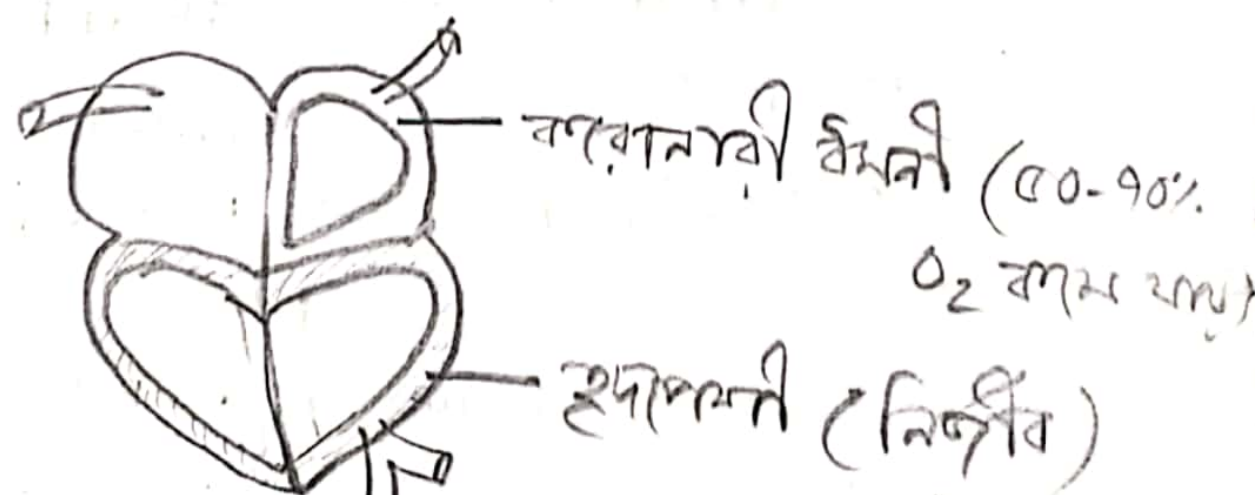 করোনারী ধমনী (৫০-৭০%
O₂ কমে যায়)
হৃদপেশী (নির্জীব)